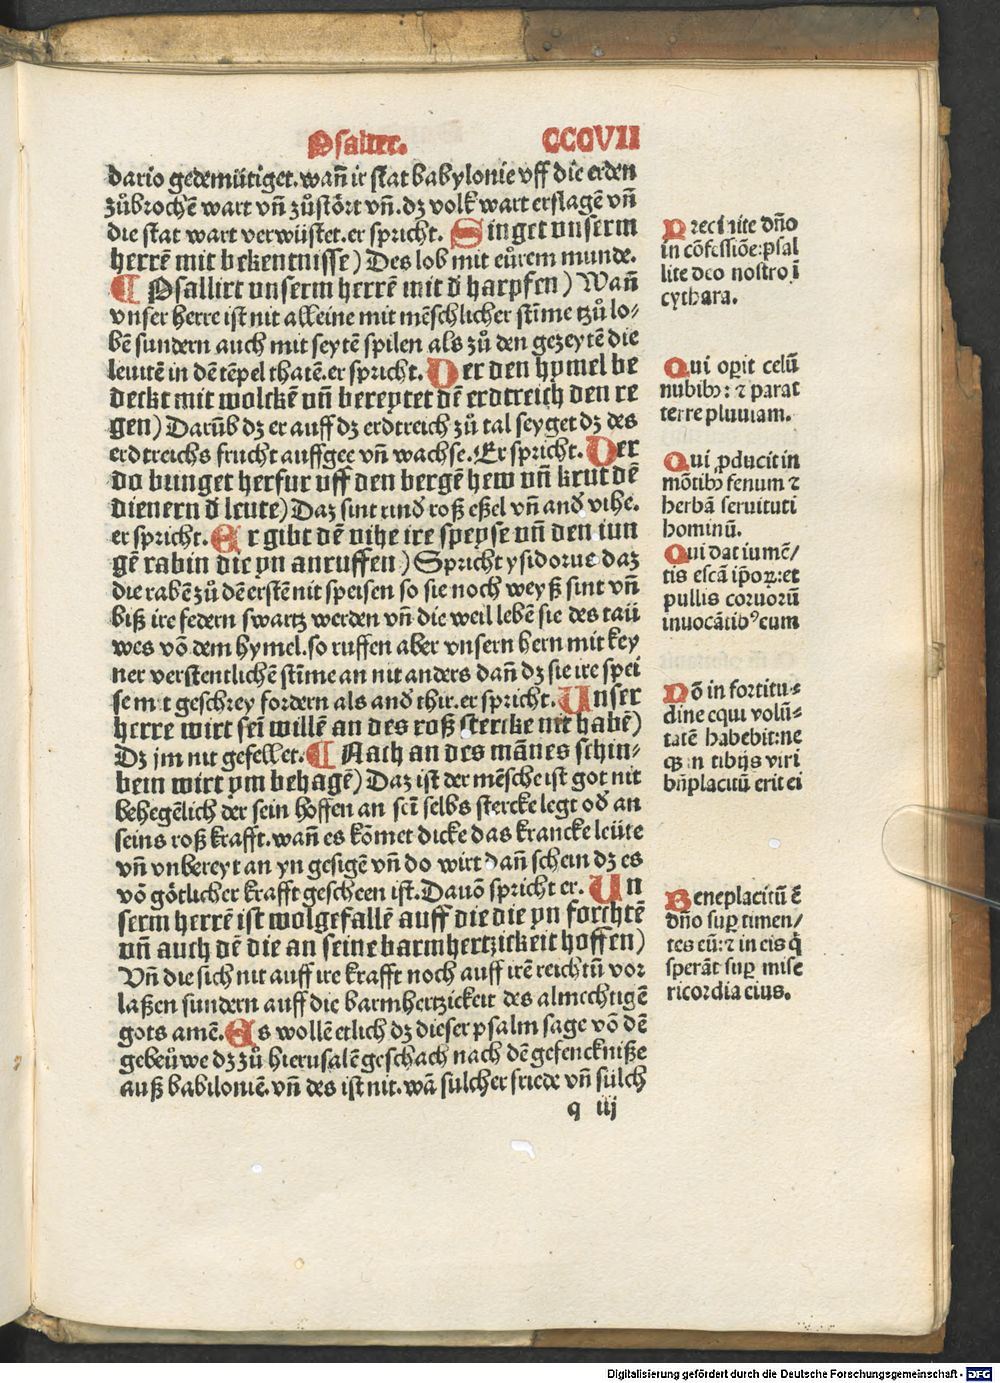 Psalter. CCCVII
dario gedemütiget. wañ ir stat babylonie vff die erden
zůbrochē wart vñ zůstört vñ. dz volk wart erslagē vñ
die stat wart verwüstet. er spricht. Singet vnserm
herrē mit bekentnisse) Des lob mit eůrem munde.
¶ Psallirt vnserm herrē mit đ harpfen) Wañ
vnser herre ist nit alleine mit mēschlicher stīme tzů lo⸗
bē sundern auch mit seytē spilen als zů den gezeytē die
leuitē in dē tēpel thatē. er spricht. Der den hymel be
deckt mit wolckē vñ bereytet dē erdtreich den re
gen) Darūb dz er auff dz erdtreich zů tal seyget dz des
erdtreichs frucht auffgee vñ wachse. Er spricht. Der
do bringet herfur vff den bergē hew vñ krut dē
dienern đ leute) Daz sint rinđ roß eßel vñ anđ vihe.
er spricht. Er gibt dē vihe ire speyse vñ den iun
gē rabin die yn anruffen) Spricht ysidorus daz
die rabē zů dē erstē nit speisen so sie noch weyß sint vñ
biß ire federn swartz werden vñ die weil lebē sie des taü
wes vō dem hymel. so ruffen aber vnsern hern mit key
ner verstentlichē stīme an nit anders dañ dz sie ire spei
se mit geschrey fordern als anđ thir. er spricht. Unser
herre wirt sein willē an des roß stercke nit habē)
Dz jm nit gefellet. ¶ Nach an des māues schin⸗
bein wirt ym behagē) Daz ist der mēsche ist got nit
behegēlich der sein hoffen an sei selbs stercke legt ođ an
seins roß krafft. wañ es kōmet dicke das krancke leüte
vñ vnbereyt an yn gesigē vñ do wirt dañ schein dz es
vō götlicher krafft gescheen ist. Dauō spricht er. Un
serm herrē ist wolgefallē auff die die yn forchtē
vñ auch dē die an seine barmhertzickeit hoffen)
Vñ die sich nit auff ire krafft noch auff irē reichtū vor
laßen sundern auff die barmhertzickeit des almechtigē
gots amē. Es wollē etlich dz dieser psalm sage vō dē
gebeůwe dz zů hierusalē geschach nach dē gefenckniße
auß babiloniē. vñ des ist nit. wā sulcher friede vñ sulch
q iij
Precinite dño
in cōfessiōe: psal
lite deo nostro ī
cythara.
Qui oꝑit celū
nubibꝫ: ⁊ parat
terre pluuiam.
Qui ꝓducit in
mōtibꝫ fenum ⁊
herbā seruituti
hominū.
Qui dat iumē/
tis escā ip̄oꝝ: et
pullis coruorū
inuocātibꝰ eum
Nō in fortitu⸗
dine equi volū⸗
tatē habebit: ne
qꝫ in tibijs viri
bn̄placitū erit ei
Beneplacitū ē
dño suꝑ timen/
tes eū: ⁊ in eis q̇
sperāt suꝑ mise
ricordia eius.
Digitalisierung gefördert durch die Deutsche Forschungsgemeinschaft - DFG